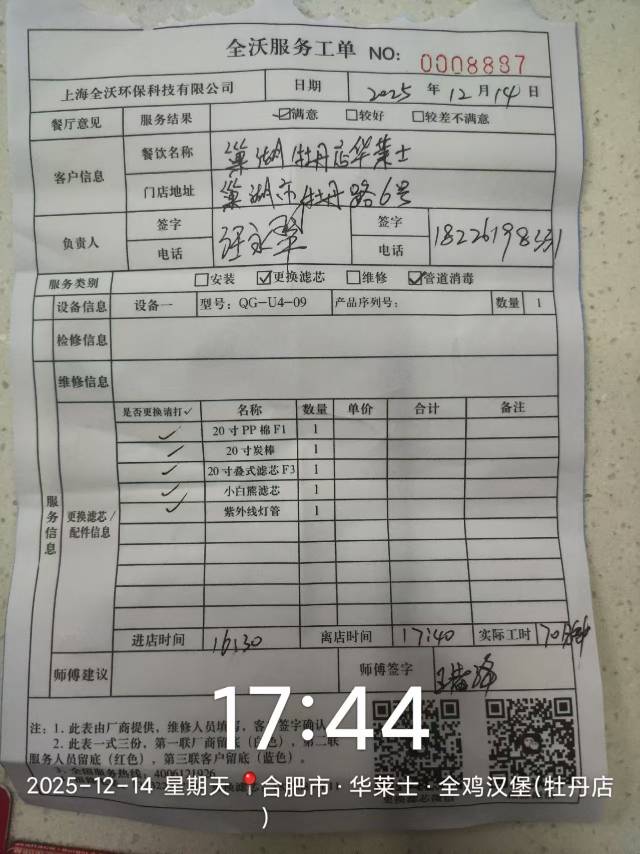 全沃服务工单 NO: 0008887
上海全沃环保科技有限公司 日期 2025 年 12 月 14 日
餐厅意见 服务结果 ☑满意 □较好 □较差不满意
客户信息 餐饮名称 巢湖牡丹店华莱士
门店地址 巢湖市牡丹路6号
负责人 签字 签字
电话 电话
服务类别 □安装 ☑更换滤芯 □维修 ☑管道消毒
设备信息 设备一 型号: QG-U4-09 产品序列号: 数量 1
检修信息
维修信息
服务信息
更换滤芯/配件信息
是否更换请打✓ 名称 数量 单价 合计 备注
✓ 20寸PP棉F1 1
✓ 20寸炭棒 1
✓ 20寸叠式滤芯F3 1
✓ 小白熊滤芯 1
✓ 紫外线灯管 1
进店时间 16:30 离店时间 17:40 实际工时 70分钟
师傅建议 师傅签字
注: 1. 此表由厂商提供，维修人员填写，客户签字确认
2. 此表一式三份，第一联厂商留底（白色），第二联
服务人员留底（红色），第三联客户留底（蓝色）。
3. 全国服务热线: 4006121926
17:44
2025-12-14 星期天 合肥市·华莱士·全鸡汉堡(牡丹店
)